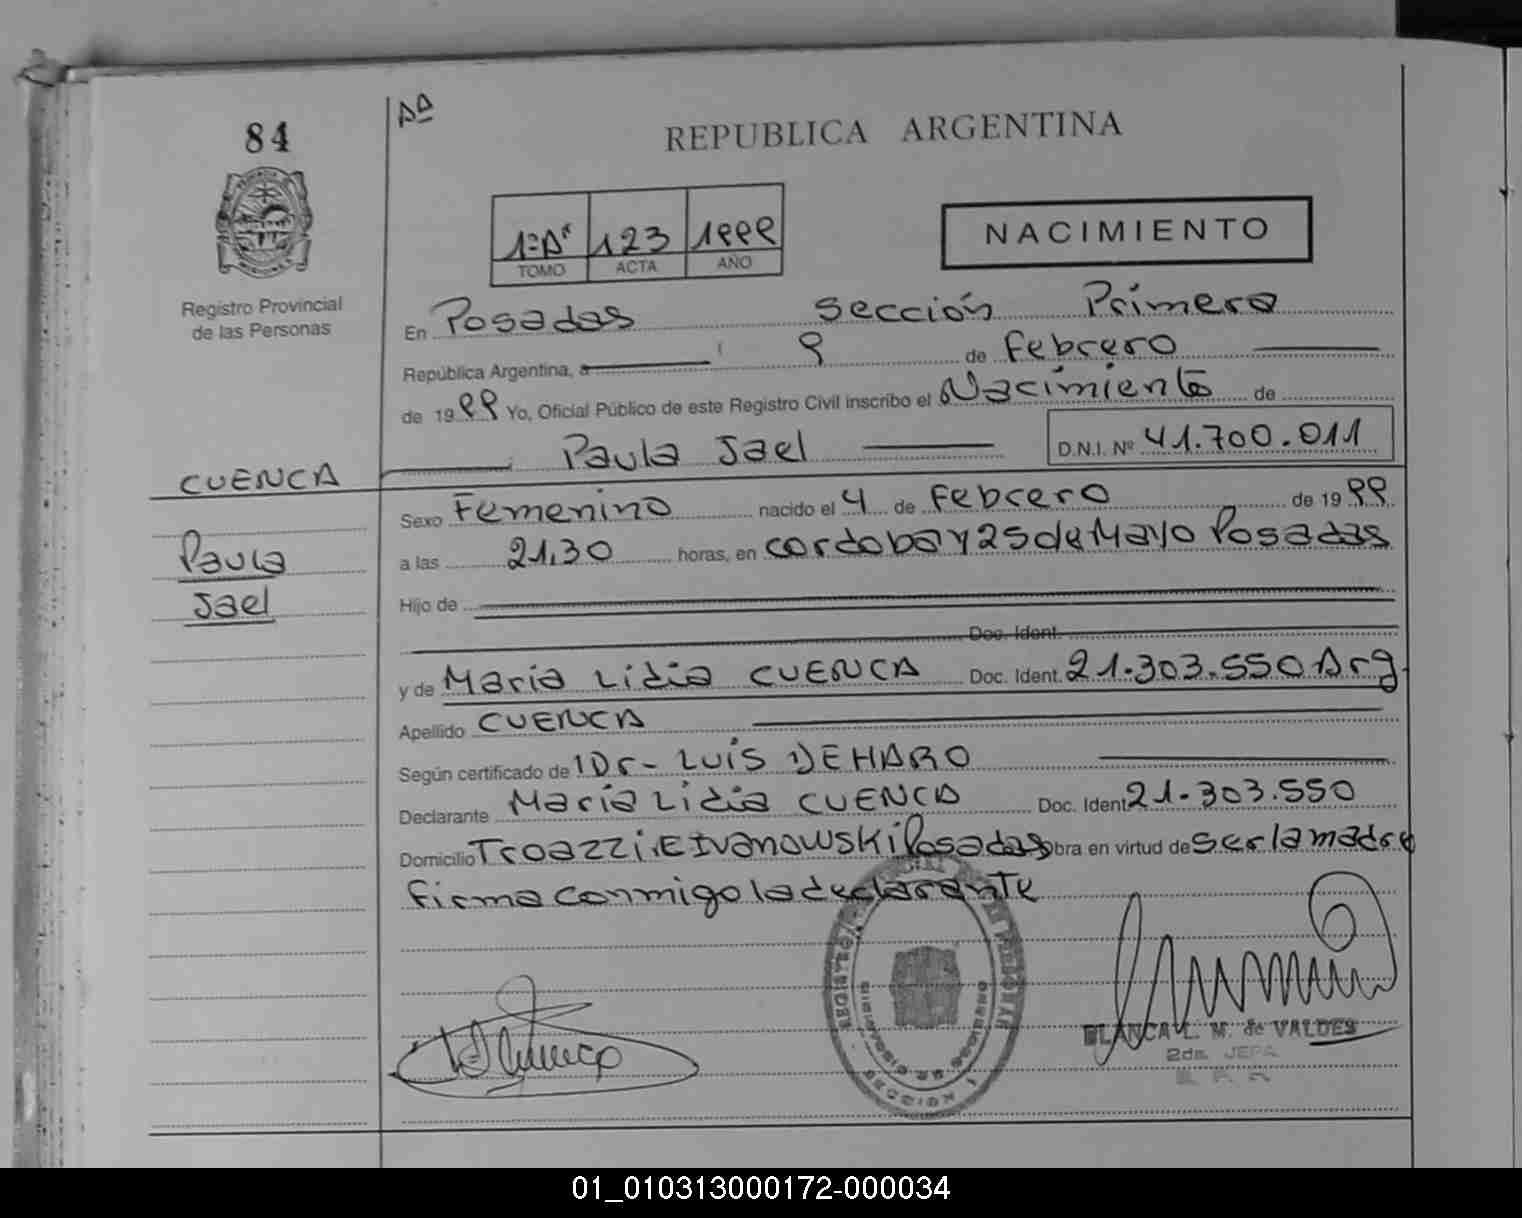 84
Aª
REPUBLICA ARGENTINA
1ºA' 123 1999
TOMO ACTA AÑO
NACIMIENTO
Registro Provincial
de las Personas
En Posadas sección Primera
República Argentina, a 9 de febrero
de 1999 Yo, Oficial Público de este Registro Civil inscribo el Nacimiento de
Paula Jael D.N.I. Nº 41.700.011
CUENCA
Paula
Jael
Sexo Femenino nacido el 4 de febrero de 1999
a las 21,30 horas, en cordoba y 25 de Mayo Posadas
Hijo de
Doc. Ident.
y de Maria Lidia CUENCA Doc. Ident. 21.303.550 Arg.
Apellido CUENCA
Según certificado de Dr- Luis DEHARO
Declarante Maria Lidia CUENCA Doc. Ident. 21.303.550
Domicilio Troazzi E Ivanowski Posadas obra en virtud de ser la madre
firma conmigo la declarante
REGISTRO PROVINCIAL DE LAS PERSONAS
SECCION 1
BLANCA L. M. de VALDES
2da. JEFA